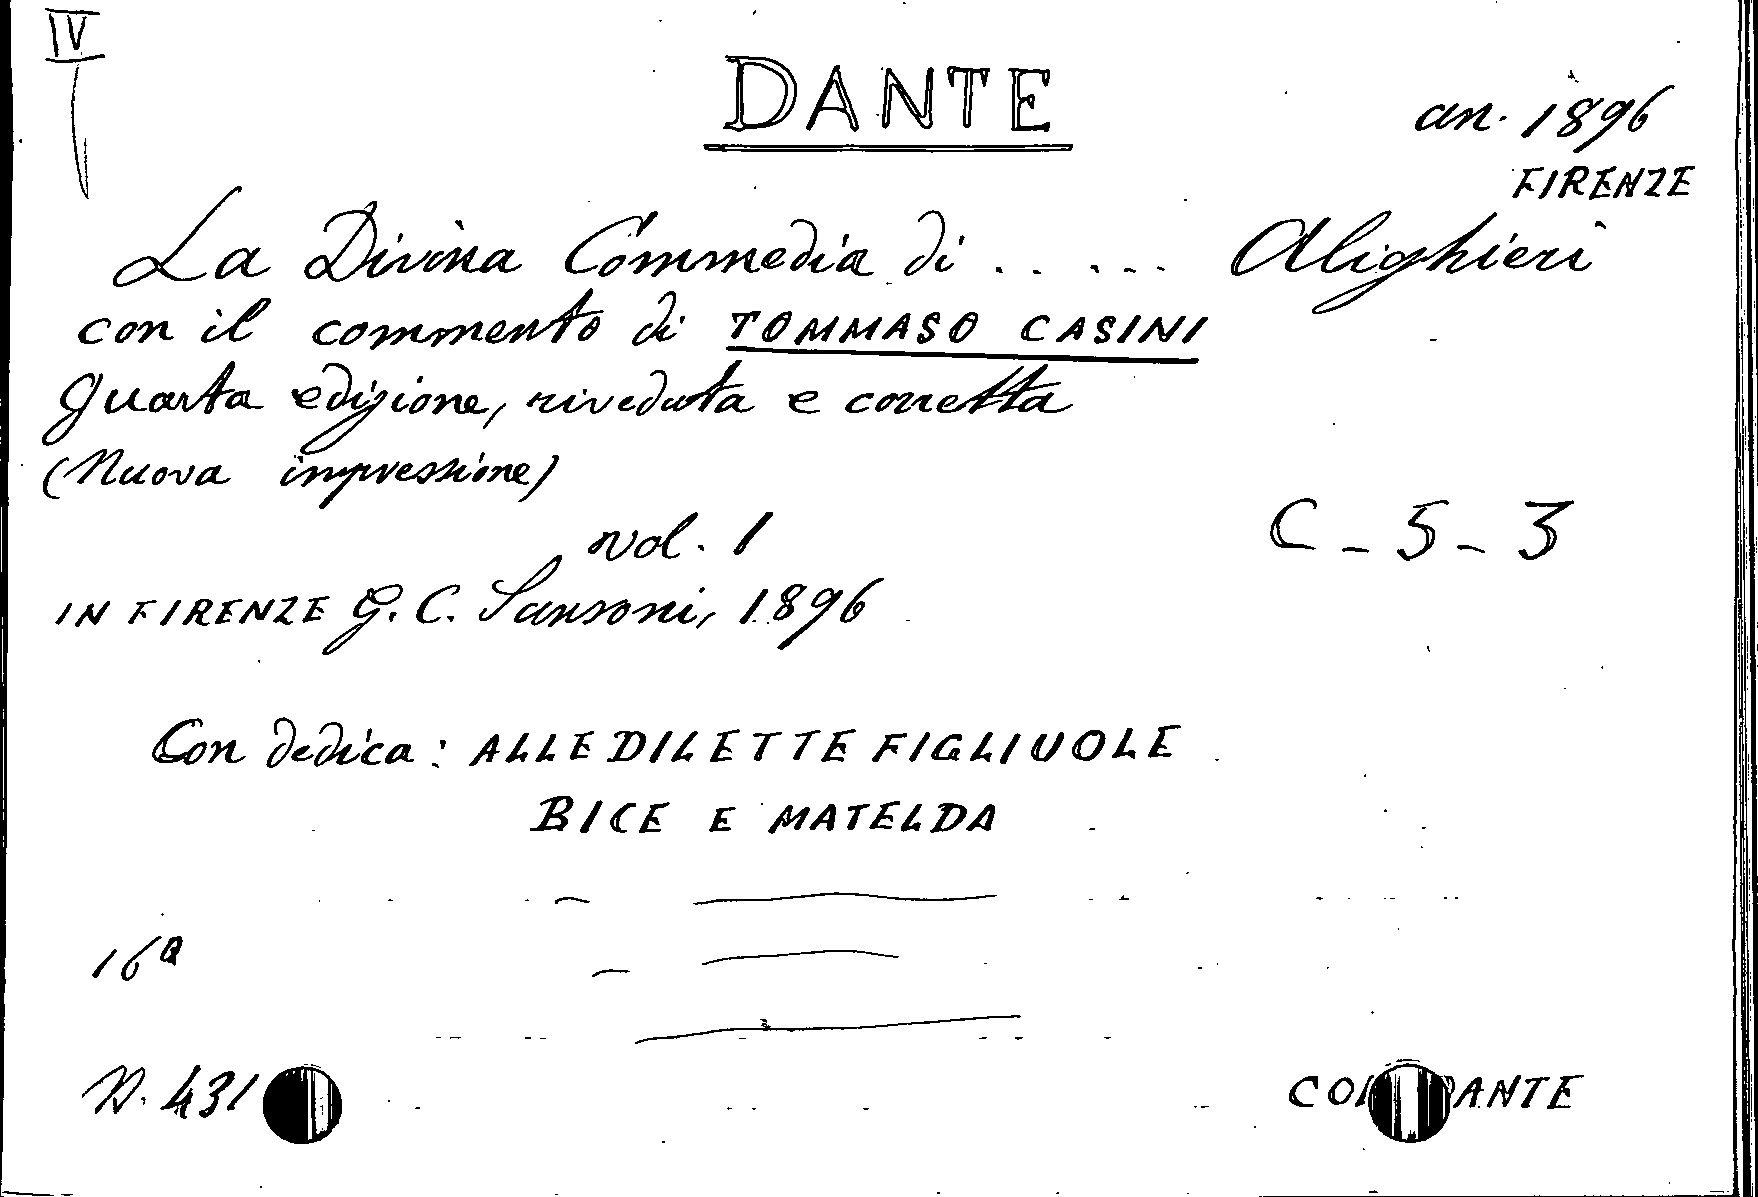 IV
DANTE
an. 1896
FIRENZE
La Divina Commedia di ..... Alighieri
con il commento di TOMMASO CASINI
Quarta edizione, riveduta e corretta
(Nuova impressione)
vol. 1
C - 5 - 3
IN FIRENZE G. C. Sansoni, 1896
Con dedica: ALLE DILETTE FIGLIUOLE
BICE E MATELDA
16ª
N. 431